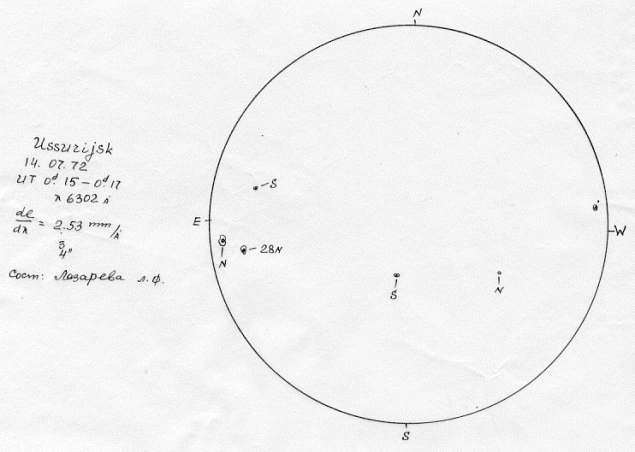 N
Ussurijsk
14. 07. 72
UT 0ᵈ 15 – 0ᵈ 17
λ 6302 Å
dl/dλ = 2.53 mm/Å
3
4"
Сост: Лазарева Л.Ф.
S
E
W
N
28N
S
N
S